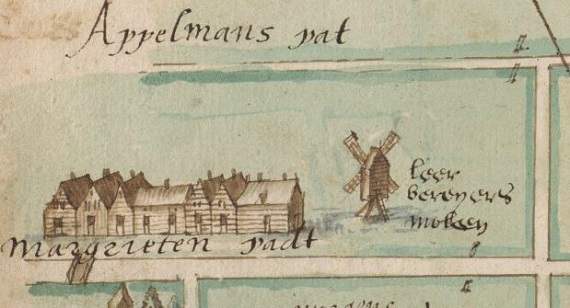 Appelmans pat
leer
bereyers
molen
Margrieten padt